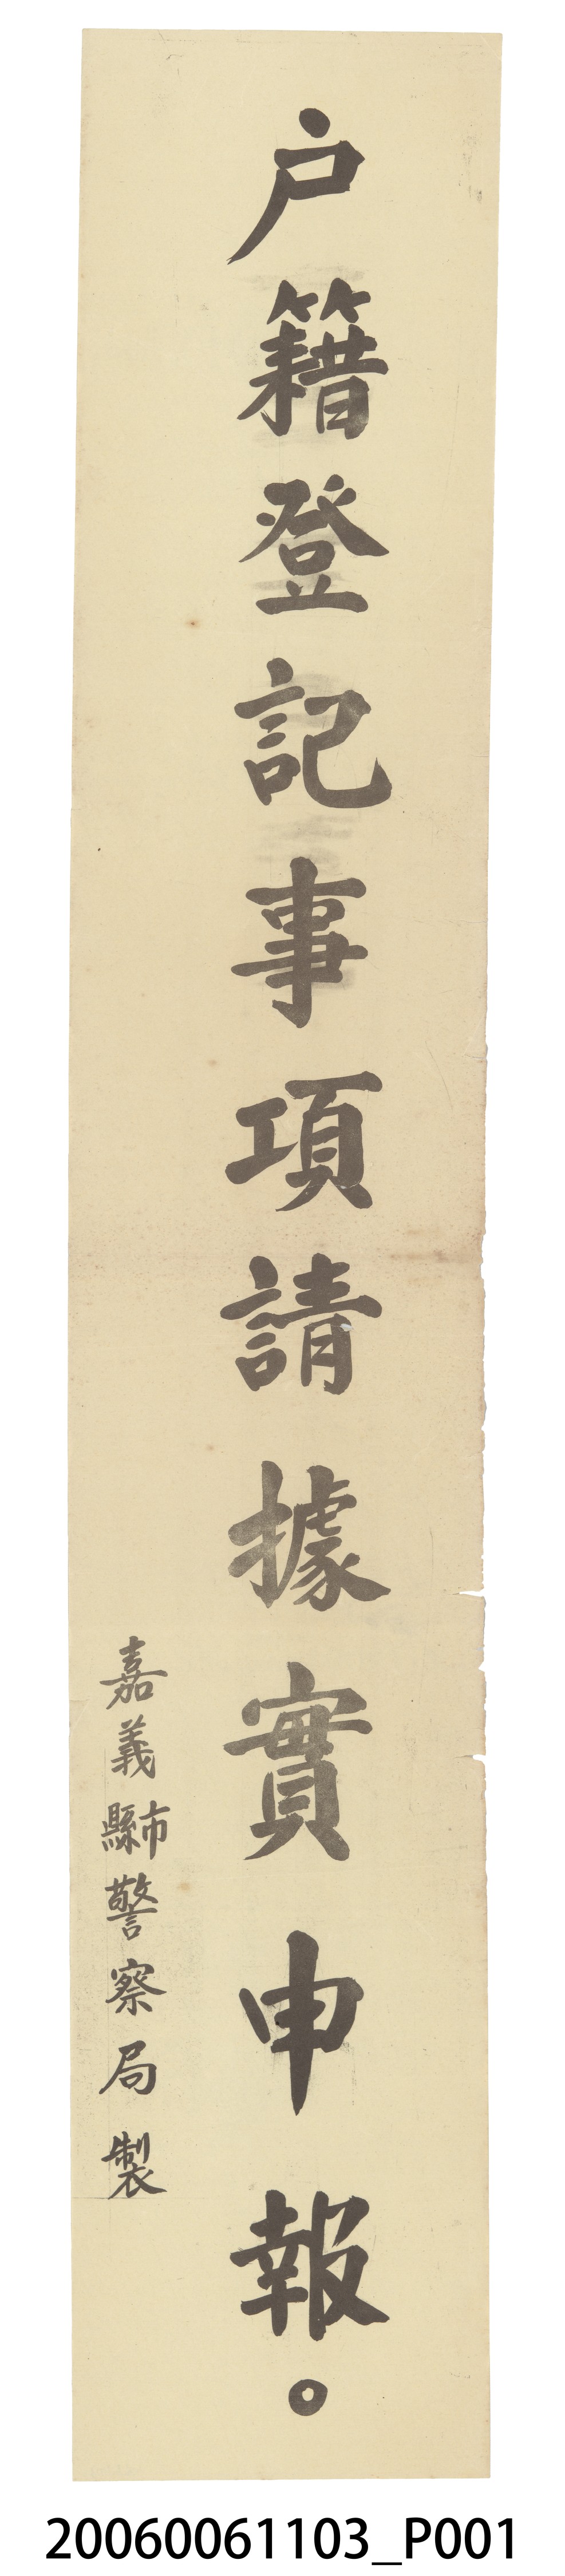 户籍登記事項請據實申報。
嘉義縣市警察局製
20060061103_P001